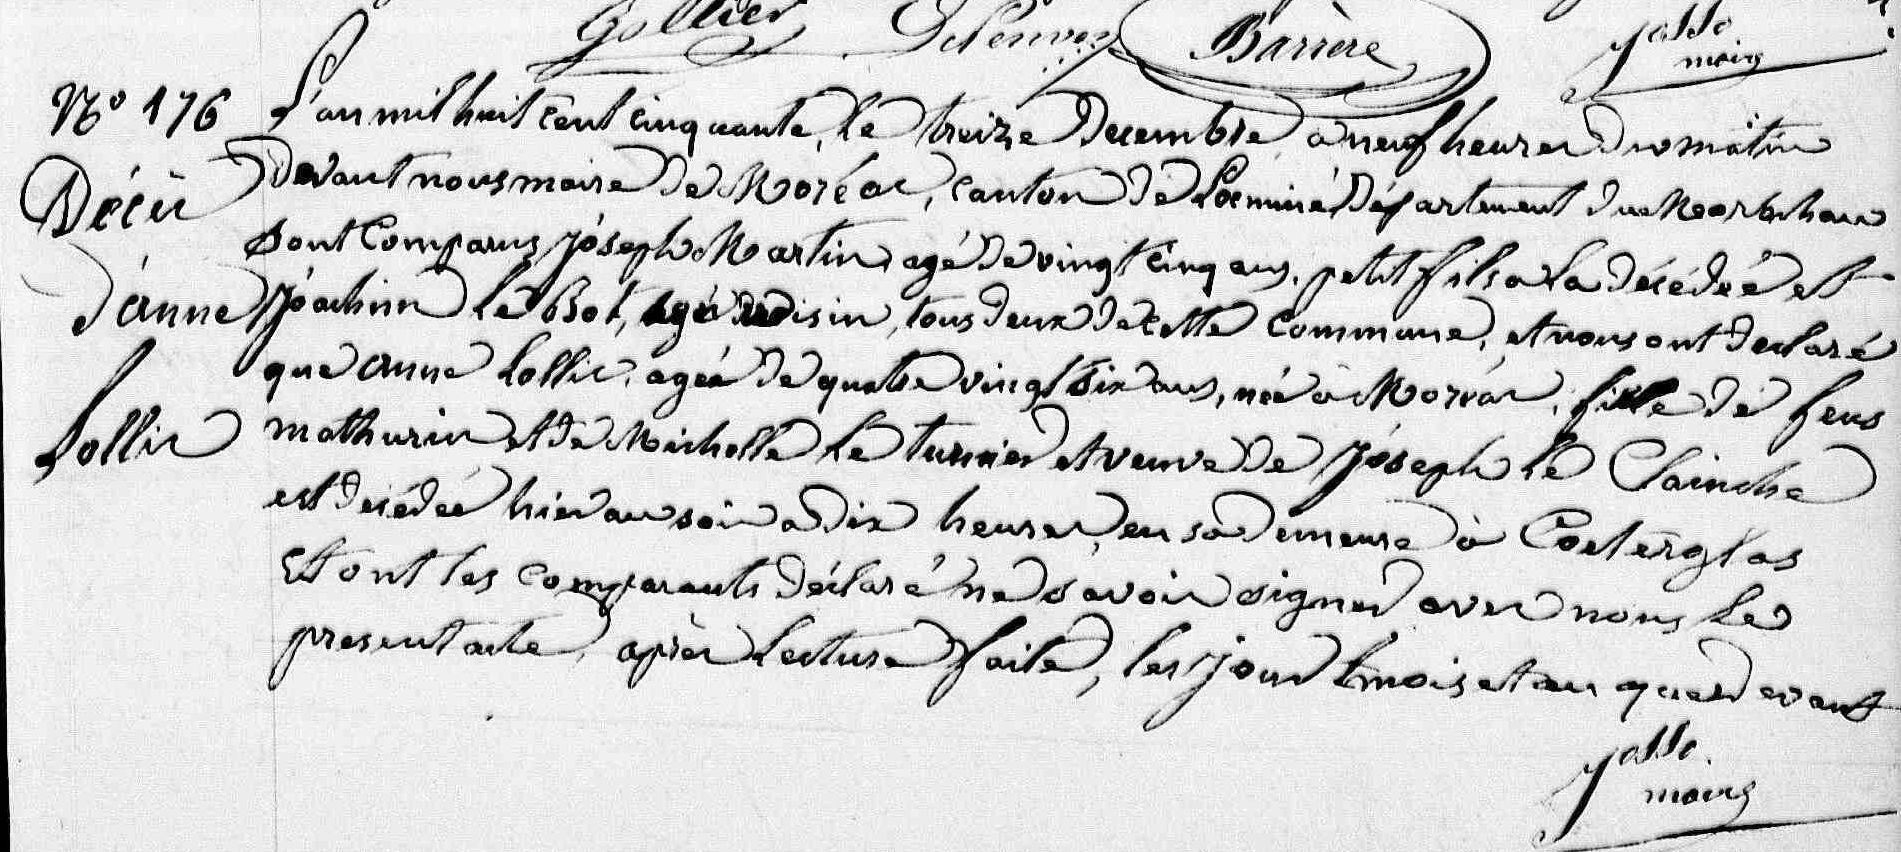 Gollier Barrère Josso
maire
N° 176 L'an mil huit cent cinquante, le treize Decembre à neuf heures du matin
Décès devant nous maire de Moréac, canton de Locminé, département du Morbihan
sont Comparus Joseph Martin, agé de vingt cinq ans, petit fils a la décédée et
d'anne Joachim Le Bot, voisin, tous deux de cette commune, et nous ont declaré
que anne Lollic, agée de quatre vingt six ans, née à Moréac, fille de feus
Lollic mathurin et de Michelle Le turnier et veuve de Joseph Le Clainche
est décédée hier au soir à dix heures, en sa demeure à Coeterglas
Et ont les comparants déclaré ne savoir signer avec nous le
present acte, après lecture faite, les jour mois et an que devant
Josso
maire